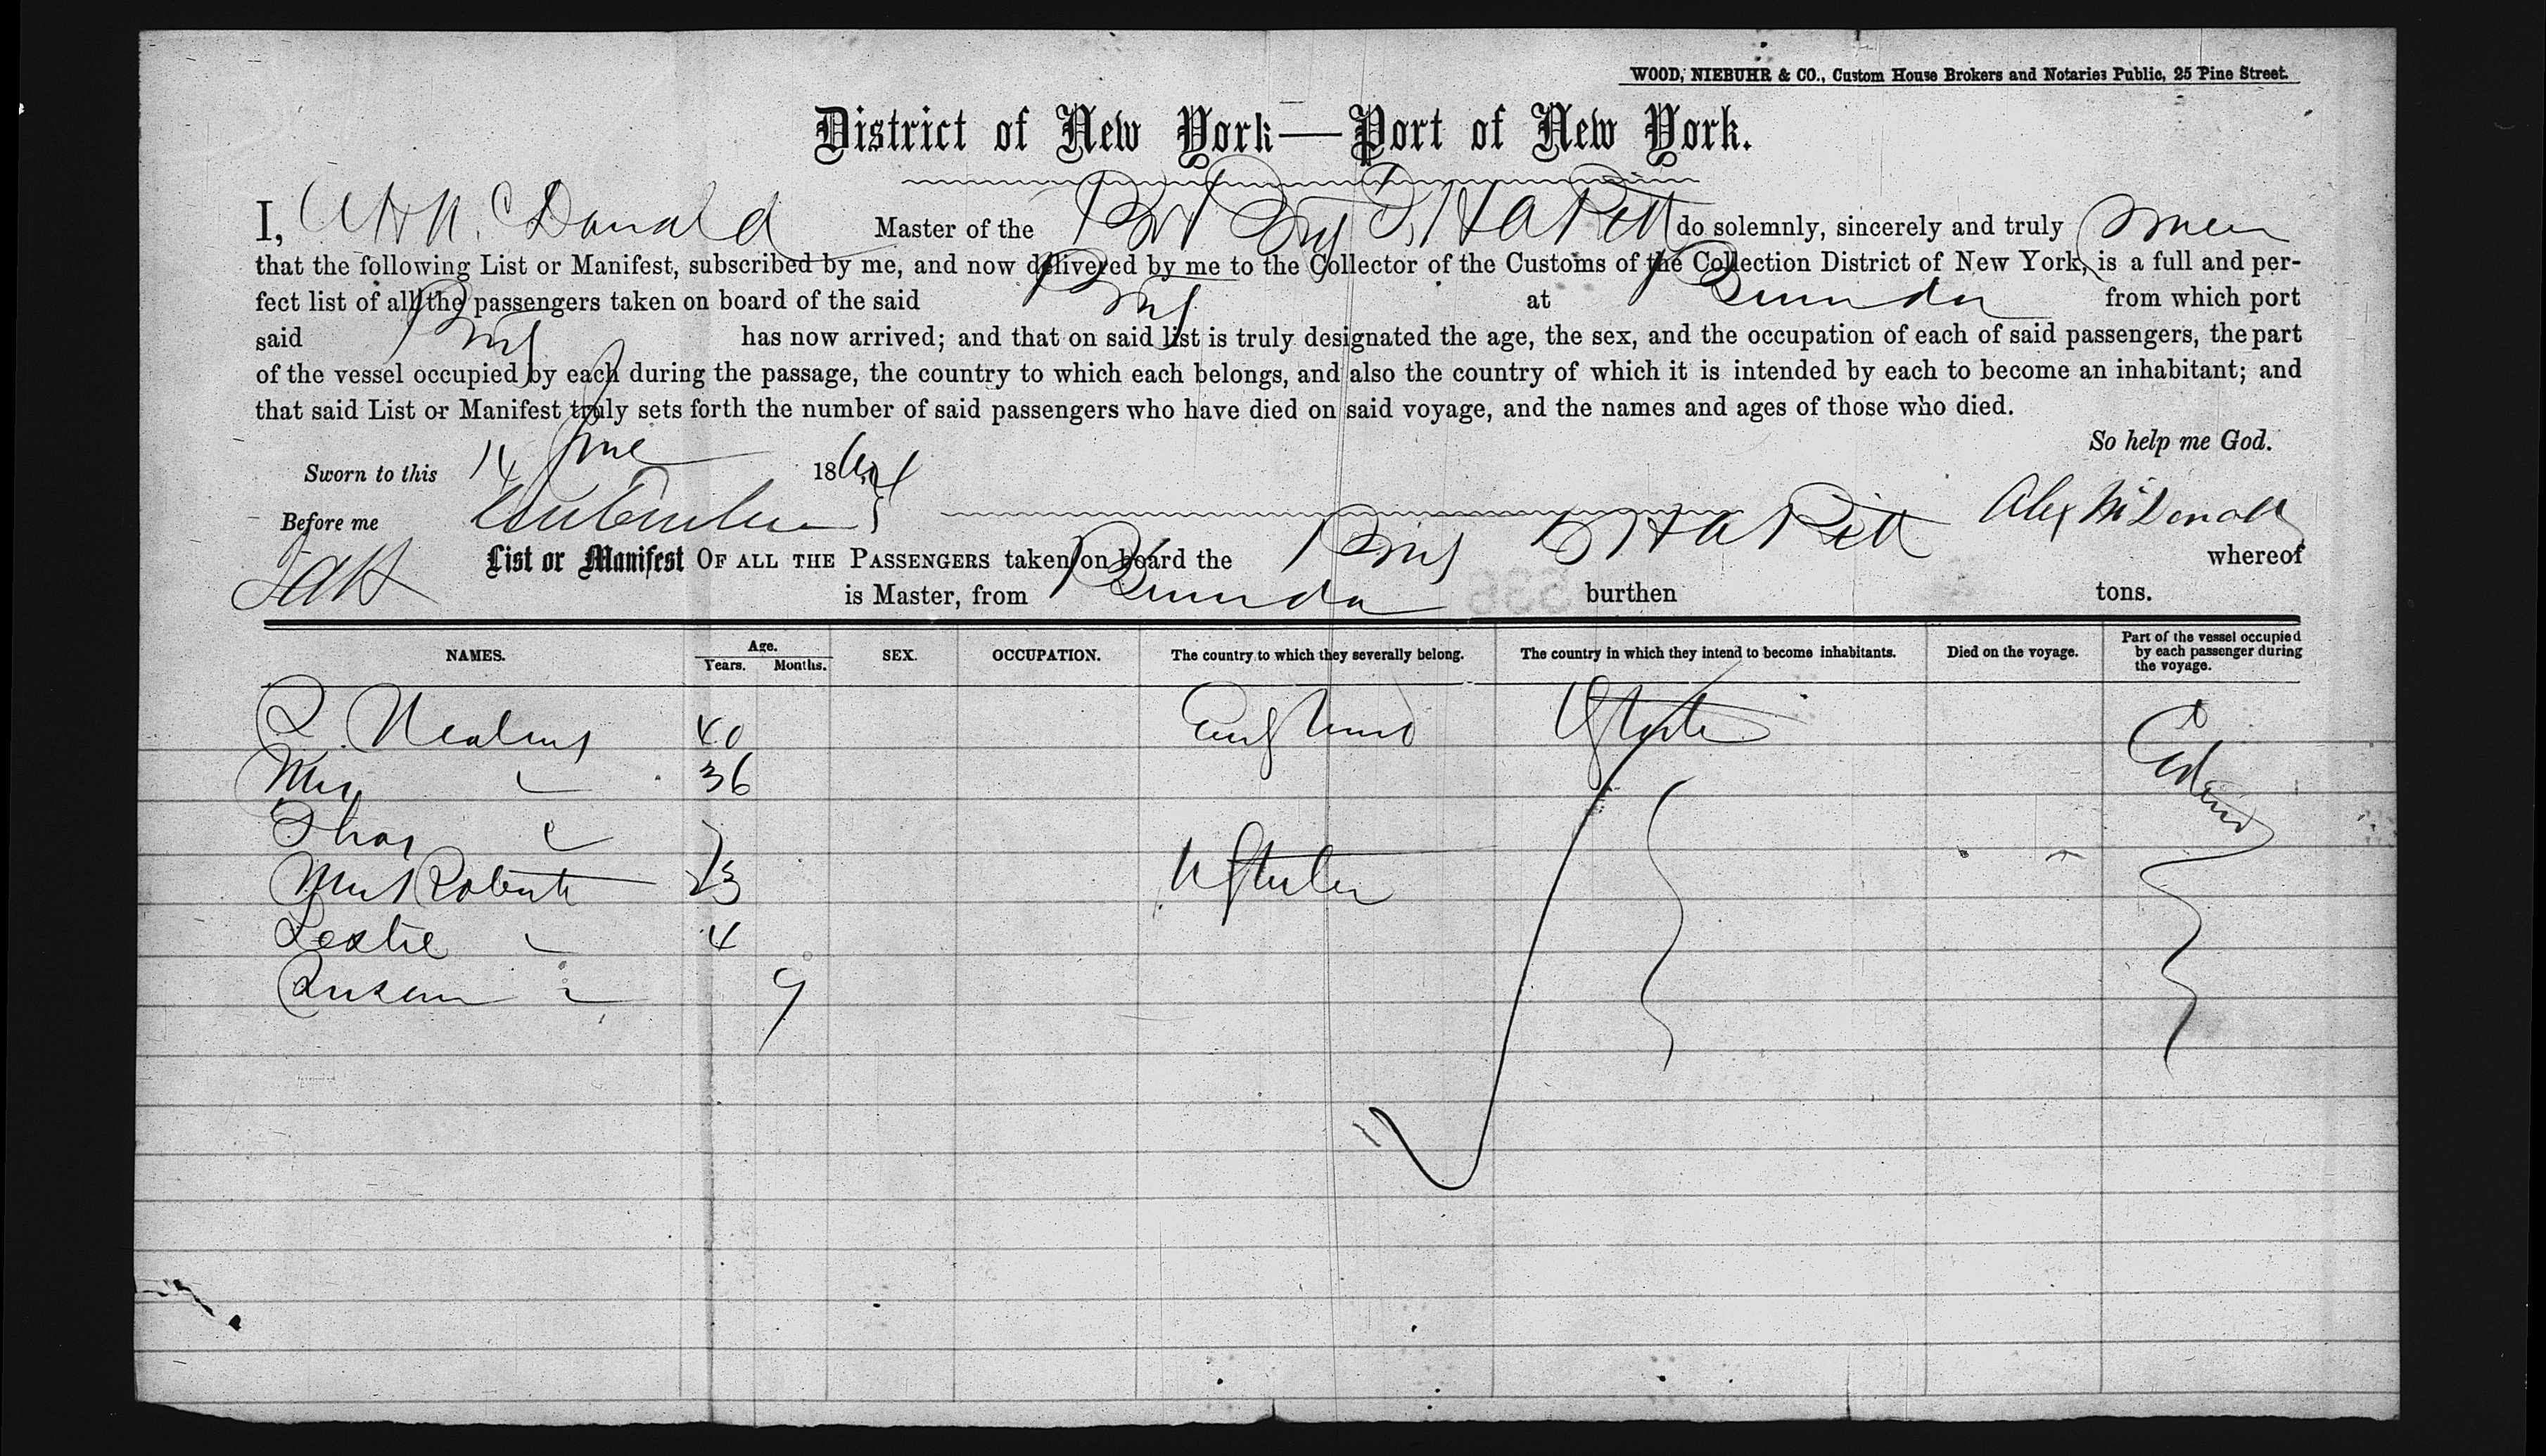 WOOD, NIEBUHR & CO., Custom House Brokers and Notaries Public, 25 Pine Street.
District of New York—Port of New York.
I, McDonald Master of the Brt Brig T. H. A. Pitt do solemnly, sincerely and truly swear
that the following List or Manifest, subscribed by me, and now delivered by me to the Collector of the Customs of the Collection District of New York, is a full and per-
fect list of all the passengers taken on board of the said Brig at Bermuda from which port
said Brig has now arrived; and that on said list is truly designated the age, the sex, and the occupation of each of said passengers, the part
of the vessel occupied by each during the passage, the country to which each belongs, and also the country of which it is intended by each to become an inhabitant; and
that said List or Manifest truly sets forth the number of said passengers who have died on said voyage, and the names and ages of those who died.
So help me God.
Sworn to this 14 June 186
Before me Alex McDonald
List or Manifest OF ALL THE PASSENGERS taken on board the Brig T. H. A. Pitt whereof
is Master, from Bermuda burthen tons.
NAMES. Age. Years. Months. SEX. OCCUPATION. The country to which they severally belong. The country in which they intend to become inhabitants. Died on the voyage. Part of the vessel occupied by each passenger during the voyage.
40 England U States Cabin
Mrs " 36
Thos "
Mrs Roberts 23 U States
Leslie " 4
" 9